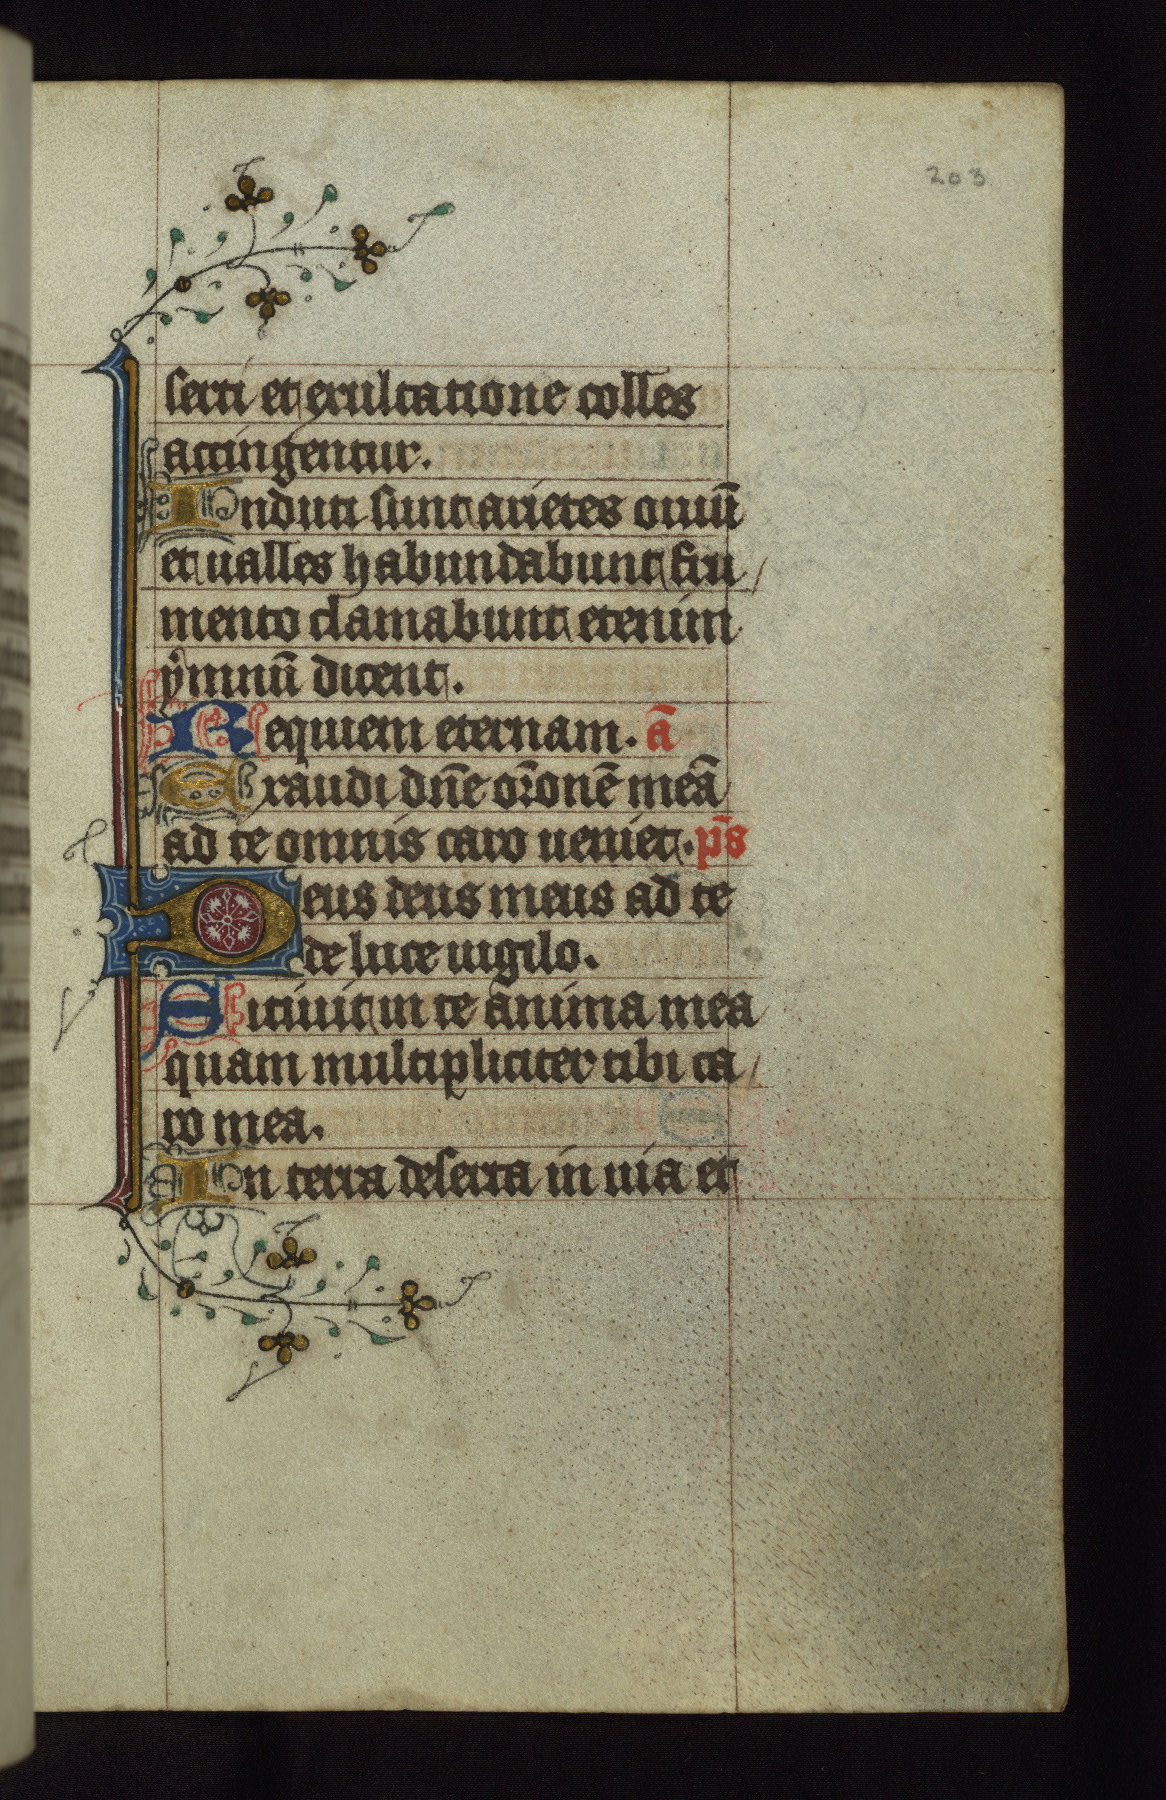 203
serti et exultatione colles
accingentur.
Induti sunt arietes ouiū
et ualles habundabunt fru/
mento clamabunt etenim
ymnū dicent.
Requiem eternam. ā
Exaudi dn̄e or̄onē meā
ad te omnis caro ueniet. p̄s
Deus deus meus ad te
de luce uigilo.
Sitiuit in te anima mea
quam multipliciter tibi ca/
ro mea.
In terra deserta in uia et